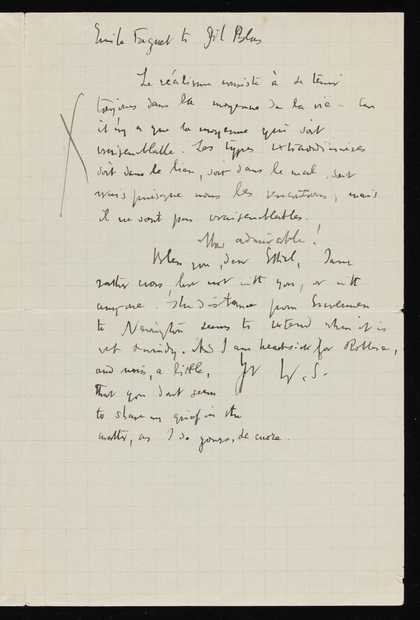 Emile Faguet to Gil Blas
Le réalisme consiste à se tenir
toujours dans la moyenne de la vie – car
il n'y a que la moyenne qui soit
vraisemblable. Les types extraordinaires
soit dans le bien, soit dans le mal, sont
vrais puisque nous les, mais
il ne sont pas vraisemblables.
admirable!
When you, dear Ethel, I am
rather cross but not with you, or with
anyone. The distance from
to seems to extend when it is
not Sunday. And I am for,
and,  a little, Yr W. S.
that you don't seem
to share my grief in the
matter, as I do yours, de cuore.